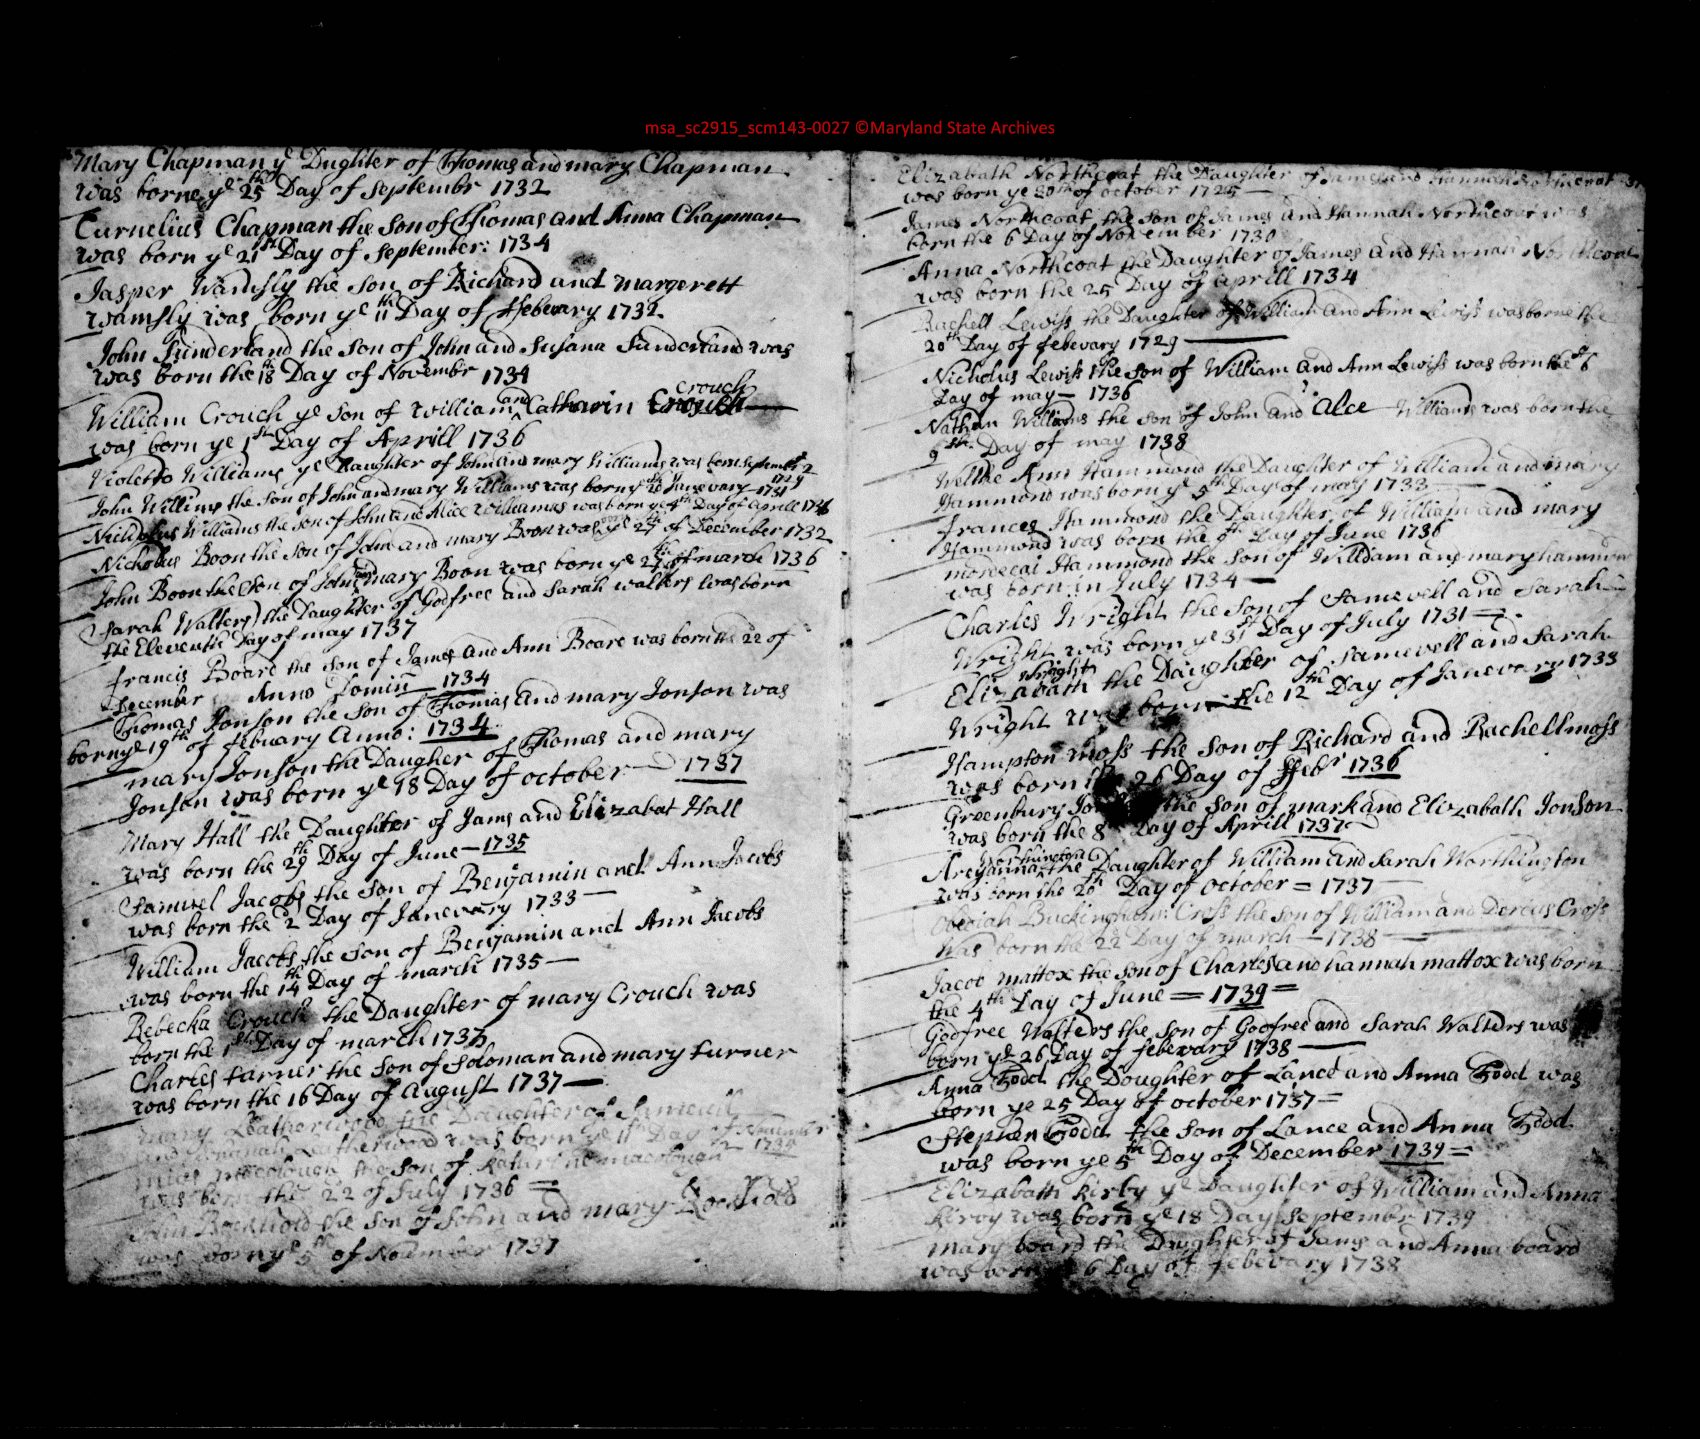 msa_sc2915_scm143-0027 ©Maryland State Archives
Mary Chapman ye Dughter of Thomas and mary Chapman
was borne ye 25th Day of Septembr 1732
Curnelius Chapman the Son of Thomas and Anna Chapman
was born ye 21st Day of September: 1734
Jasper Wamsly the Son of Richard and margerett
wamsly was born ye 11th Day of ffebuary 1732
John Sunderland the Son of John and Susana Sunderland was
was born the 18th Day of November 1734
William Crouch ye Son of William and Catharin Crouch
was born ye 1st Day of Aprill 1736
Violetto Williams ye Daughter of John and mary Williams was born September 2 1729
John Willims the Son of John and mary Williams was born ye 20th Janevary 1731
Nicholus Williams the Son of John and Alice Williamus was born ye 4th Day of Aprill 1736
Nicholus Boon the Son of John and mary Boon was ye 27th of December 1732
John Boon the Son of John and mary Boon was born ye 27th of march 1736
Sarah Walters the Daughter of Godfree and Sarah walters was born
the Eleventh Day of may 1737
francis Board the Son of James and Ann Board was born the 22 of
December Anno Domini 1734
Thomas Jonson the Son of Thomas and mary Jonson was
born ye 19th of febuary Anno: 1734
mary Jonson the Daugher of Thomas and mary
Jonson was born ye 18 Day of october 1737
Mary Hall the Daughter of Jams and Elizabat Hall
was born the 29th Day of June 1735
Samuel Jacobs the Son of Benjamin and Ann Jacobs
was born the 2 Day of Janevary 1733
William Jacobs the Son of Benjamin and Ann Jacobs
was born the 14th Day of march 1735
Rebecka Crouch the Daughter of mary Crouch was
born the 1st Day of march 1735
Charles turner the Son of Soloman and mary turner
was born the 16 Day of August 1737
mary Leatherwood the Daughter of Samewell
and Leatherwood was born ye 11th Day of November
the Son of
was born the 22 of July 1736
John Rockhold the Son of John and mary Rockhold
was born ye 5th of November 1737
Elizabath Northcoat the Daughter of James and Hannah Northcoat
was born ye 20th of october 1725
James Northcoat the Son of James and Hannah Northcoat was
born the 6 Day of November 1730
Anna Northcoat the Daughter of James and Hannah Northcoat
was born the 25 Day of aprill 1734
Rachell Lewiss the Daughter of William and Ann Lewiss was borne the
20th Day of febevary 1729
Nicholus Lewiss the Son of William and Ann Lewiss was born the 6
Day of may 1736
Nathan Williams the Son of John and Alce Williams was born the
9th Day of may 1738
Ann Hammond the Daughter of William and mary
Hammond was born ye 5th Day of may 1733
frances Hammond the Daughter of William and mary
Hammond was born the 9th Day of June 1736
mordecai Hammond the Son of William and mary hammon
was born in July 1734
Charles Wright the Son of Samevell and Sarah
Wright was born ye 31st Day of July 1731
Elizabath Wright the Daughter of Samevell and Sarah
Wright was born the 12th Day of Janevary 1733
Hampton moss the Son of Richard and Rachell moss
was born 26 Day of ffebr 1736
Greenbury the Son of mark and Elizabath Jonson
was born the 8 Day of Aprill 1737
Areyanna Worthington the Daughter of William and Sarah Worthington
was born the 20th Day of october = 1737
Obediah Buckingham: Cross the Son of William and Dorcus Cross
Was born the 22 Day of march 1738
Jacob mattox the Son of Charles and hannah mattox was born
the 4th Day of June = 1739 =
Godfree Walters the Son of Godfree and Sarah Walters was
born ye 26 Day of febevary 1738
Anna Todd the Doughter of Lance and Anna Todd was
born ye 25 Day of october 1737 =
Stephen Todd the Son of Lance and Anna Todd
was born ye 5th Day of December 1739 =
Elizabath Kirby ye Daughter of William and Anna
Kirby was born ye 18 Day September 1739
mary board the Daughter of Jams and Anna board
was born 6 Day of febevary 1738